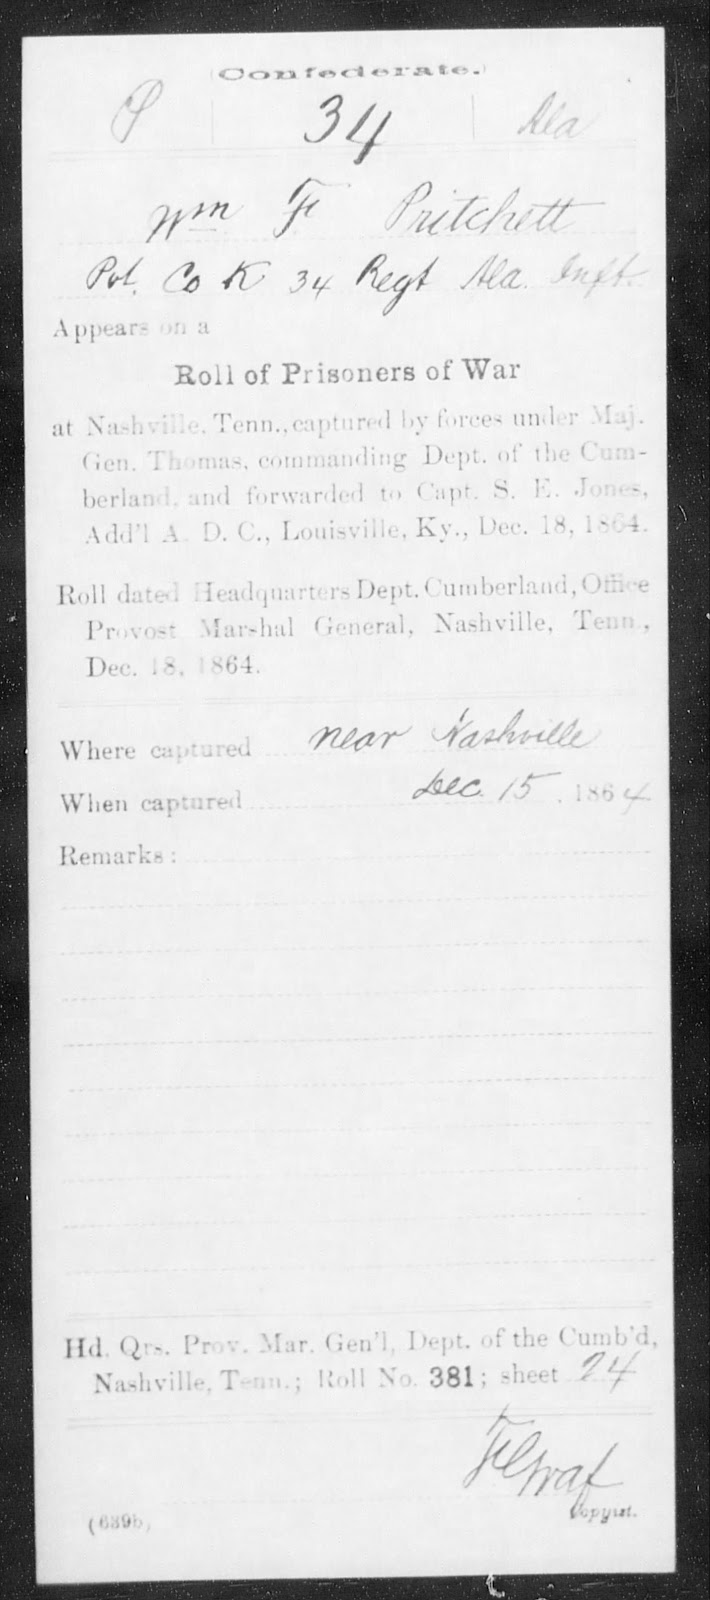 (Confederate.)
P 34 Ala
Wm F Pritchett
Pvt. Co K 34 Regt Ala. Inft.
Appears on a
Roll of Prisoners of War
at Nashville, Tenn., captured by forces under Maj.
Gen. Thomas, commanding Dept. of the Cum-
berland, and forwarded to Capt. S. E. Jones,
Add'l A. D. C., Louisville, Ky., Dec. 18, 1864.
Roll dated Headquarters Dept. Cumberland, Office
Provost Marshal General, Nashville, Tenn.,
Dec. 18, 1864.
Where captured near Nashville
When captured Dec. 15, 1864
Remarks:
Hd. Qrs. Prov. Mar. Gen'l, Dept. of the Cumb'd,
Nashville, Tenn.; Roll No. 381; sheet 24
Graf
Copyist.
(639b)